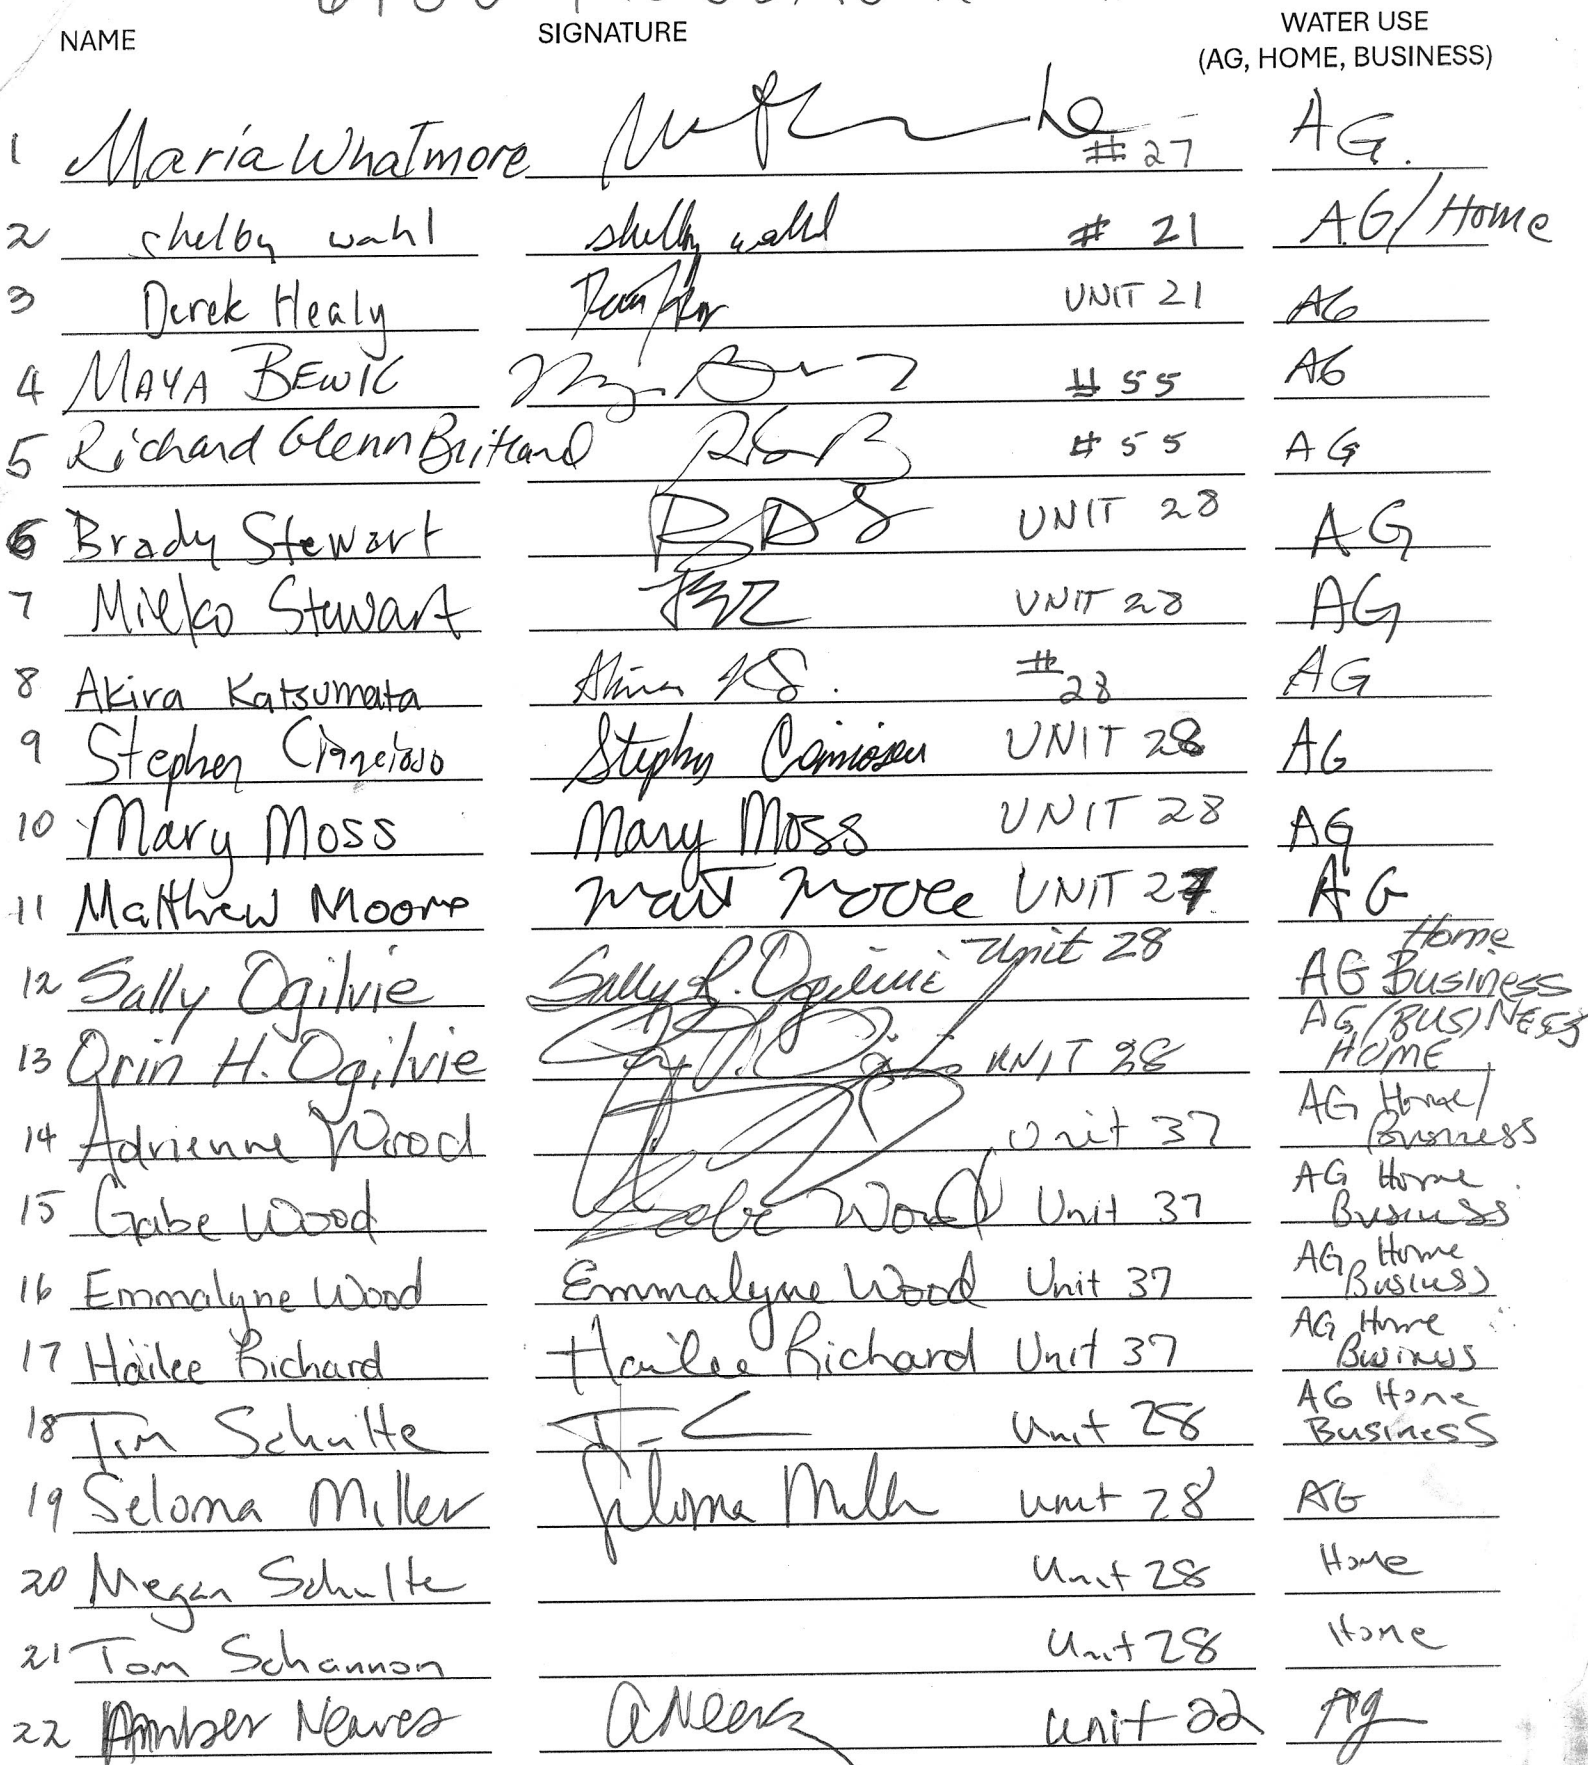 NAME SIGNATURE WATER USE
(AG, HOME, BUSINESS)
1 Maria Whatmore # 27 AG.
2 shelby wahl shelby wahl # 21 AG/Home
3 Derek Healy UNIT 21 AG
4 MAYA BEWIC # 55 AG
5 Richard Glenn Britland # 55 AG
6 Brady Stewart BDS UNIT 28 AG
7 Mielko Stewart UNIT 28 AG
8 Akira Katsumata Akira KS. # 28 AG
9 Stephen Stephen UNIT 28 AG
10 Mary Moss Mary Moss UNIT 28 AG
11 Matthew Moore Matt Moore UNIT 27 AG
12 Sally Ogilvie Sally L. Ogilvie Unit 28 Home AG Business
13 Orin H. Ogilvie UNIT 28 AG/BUSINESS HOME
14 Adrienne Wood Unit 37 AG Home/ Business
15 Gabe Wood Gabe Wood Unit 37 AG Home Business
16 Emmalyne Wood Emmalyne Wood Unit 37 AG Home Business
17 Hailee Richard Hailee Richard Unit 37 AG Home Business
18 Tim Schulte Unit 28 AG Home Business
19 Seloma Miller Seloma Miller Unit 28 AG
20 Megan Schulte Unit 28 Home
21 Tom Schannon Unit 28 Home
22 Amber Neaves unit 22 Ag